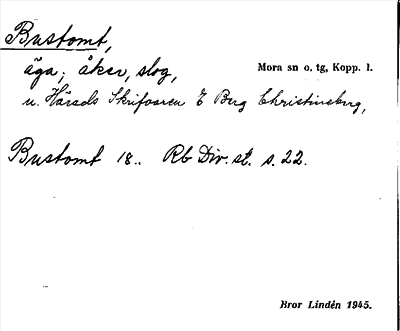 Bustomt,
äga; åker, slog,
Mora sn o. tg, Kopp. l.
u. Härads Skrifvaren E Berg Christineberg,
Bustomt 18.. Rb Div. st. s. 22.
Bror Lindén 1945.